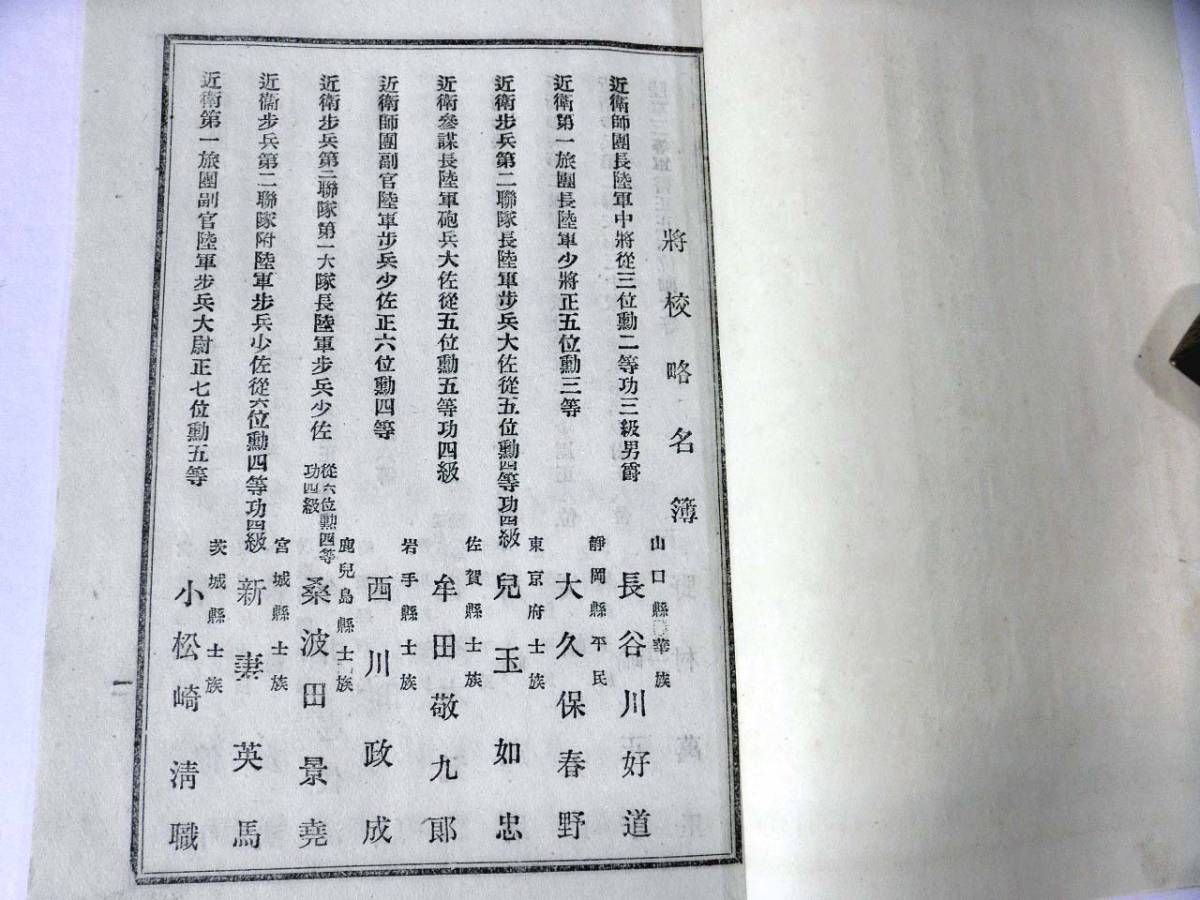 將校略名簿
近衛師團長陸軍中將從三位勳二等功三級男爵
山口縣華族
長谷川好道
近衛第一旅團長陸軍少將正五位勳三等
靜岡縣平民
大久保春野
近衛步兵第二聯隊長陸軍步兵大佐從五位勳四等功四級
東京府士族
兒玉如忠
近衛參謀長陸軍砲兵大佐從五位勳五等功四級
佐賀縣士族
牟田敬九郞
近衛師團副官陸軍步兵少佐正六位勳四等
岩手縣士族
西川政成
近衛步兵第二聯隊第一大隊長陸軍步兵少佐
從六位勳四等
功四級
鹿兒島縣士族
桑波田景堯
近衞步兵第二聯隊附陸軍步兵少佐從六位勳四等功四級
宮城縣士族
新妻英馬
近衛第一旅團副官陸軍步兵大尉正七位勳五等
茨城縣士族
小松崎淸職
一